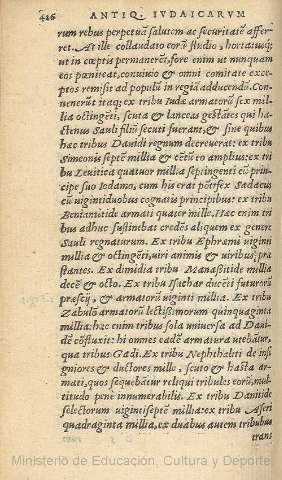 426 ANTIQ. IVDAICARVM
rum rebus perpetuã salutem ac securitatẽ affer
ret. At ille collaudato eorũ studio, hortatusq;
ut in cœptis permanerẽt, fore enim ut nunquam
eos pœniteat, conuiuio & omni comitate exce-
ptos remisit ad populũ in regiã adducendũ. Con-
uenerũt itaq; ex tribu Iudæ armatorũ sex mil
lia octingẽti, scuta & lanceas gestãtes qui ha-
ctenus Sauli filiũ secuti fuerant, & sine quibus
hæc tribus Dauidi regnum decreuerat: ex tribu
Simeonis septẽ millia & cẽtũ eo amplius: ex tri
bu Leuitica quatuor millia septingenti cũ prin-
cipe suo Iedamo, cum his erat põtifex Sadacus
cũ uigintiduobus cognatis principibus: ex tribu
Beniamitide armati quater mille. Hæc enim tri
bus adhuc sustinebat credẽs aliquem ex genere
Sauli regnaturum. Ex tribu Ephræmi uiginti
millia & octingẽti, uiri animis & uiribus præ
stantes. Ex dimidia tribu Manaßitide millia
decẽ & octo. Ex tribu Isachar ducẽti futurorũ
præscij, & armatorũ uiginti millia. Ex tribu
Zabulõ armatorũ lectißimorum quinquaginta
millia: hæc enim tribus sola uniuersa ad Daui-
dẽ cõfluxit: hi omnes eadẽ armatura utebãtur,
qua tribus Gadi. Ex tribu Nephthaliti de insi
gniores & ductores mille, scuto & hasta ar-
mati, quos sequebatur reliqui tribules eorũ, mul-
titudo pene innumerabilis. Ex tribu Danitide
selectorum uigintiseptẽ millia: ex tribu Aseri
quadraginta millia, ex duabus autem tribubus
trans
Ministerio de Educación, Cultura y Deporte